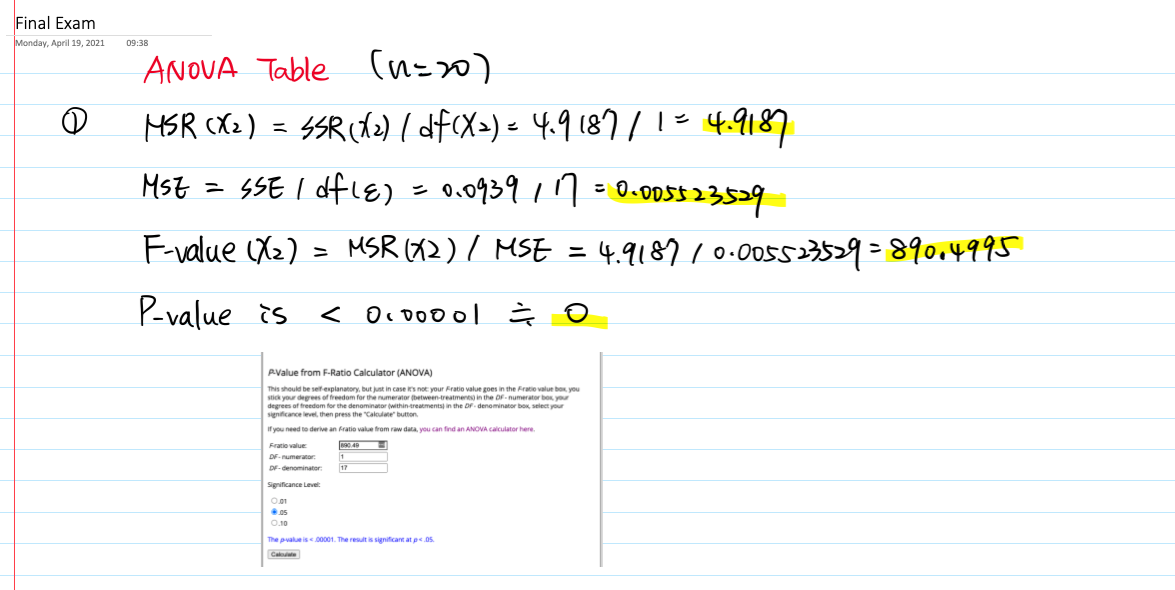 Final Exam
Monday, April 19, 2021 09:38
ANOVA Table (n=20)
① MSR (X2) = SSR(X2) / df(X2) = 4.9187 / 1 = 4.9187
MSE = SSE / df(ε) = 0.0939 / 17 = 0.005523529
F-value (X2) = MSR(X2) / MSE = 4.9187 / 0.005523529 = 890.4995
P-value is < 0.00001 ≒ 0
P-Value from F-Ratio Calculator (ANOVA)
This should be self-explanatory, but just in case it's not: your F-ratio value goes in the F-ratio value box, you
stick your degrees of freedom for the numerator (between-treatments) in the DF - numerator box, your
degrees of freedom for the denominator (within-treatments) in the DF - denominator box, select your
significance level, then press the "Calculate" button.
If you need to derive an F-ratio value from raw data, you can find an ANOVA calculator here.
F-ratio value: 890.49
DF - numerator: 1
DF - denominator: 17
Significance Level:
.01
.05
.10
The p-value is < .00001. The result is significant at p < .05.
Calculate